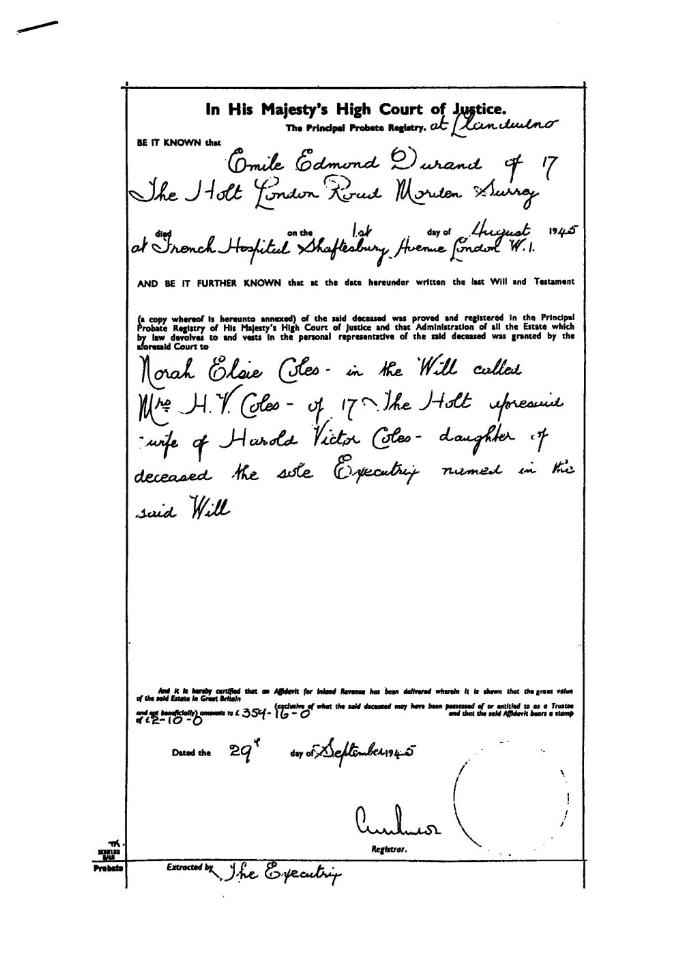 In His Majesty's High Court of Justice.
The Principal Probate Registry. at Llandudno
BE IT KNOWN that
Emile Edmond Durand of 17
The Holt London Road Morden Surrey
died on the 1st day of August 1945
at French Hospital Shaftesbury Avenue London W.1.
AND BE IT FURTHER KNOWN that at the date hereunder written the last Will and Testament
(a copy whereof is hereunto annexed) of the said deceased was proved and registered in the Principal
Probate Registry of His Majesty's High Court of Justice and that Administration of all the Estate which
by law devolves to and vests in the personal representative of the said deceased was granted by the
aforesaid Court to
Norah Elsie Coles - in the Will called
Mrs H.V. Coles - of 17 The Holt aforesaid
wife of Harold Victor Coles - daughter of
deceased the sole Executrix named in the
said Will
And it is hereby certified that an Affidavit for Inland Revenue has been delivered wherein it is shewn that the gross value
of the said Estate in Great Britain
(exclusive of what the said deceased may have been possessed of or entitled to as a Trustee
and not beneficially) amounts to £ 354-16-0 and that the said Affidavit bears a stamp
of £2-10-0
Dated the 29th day of September 1945
Registrar.
Probate
Extracted by The Executrix